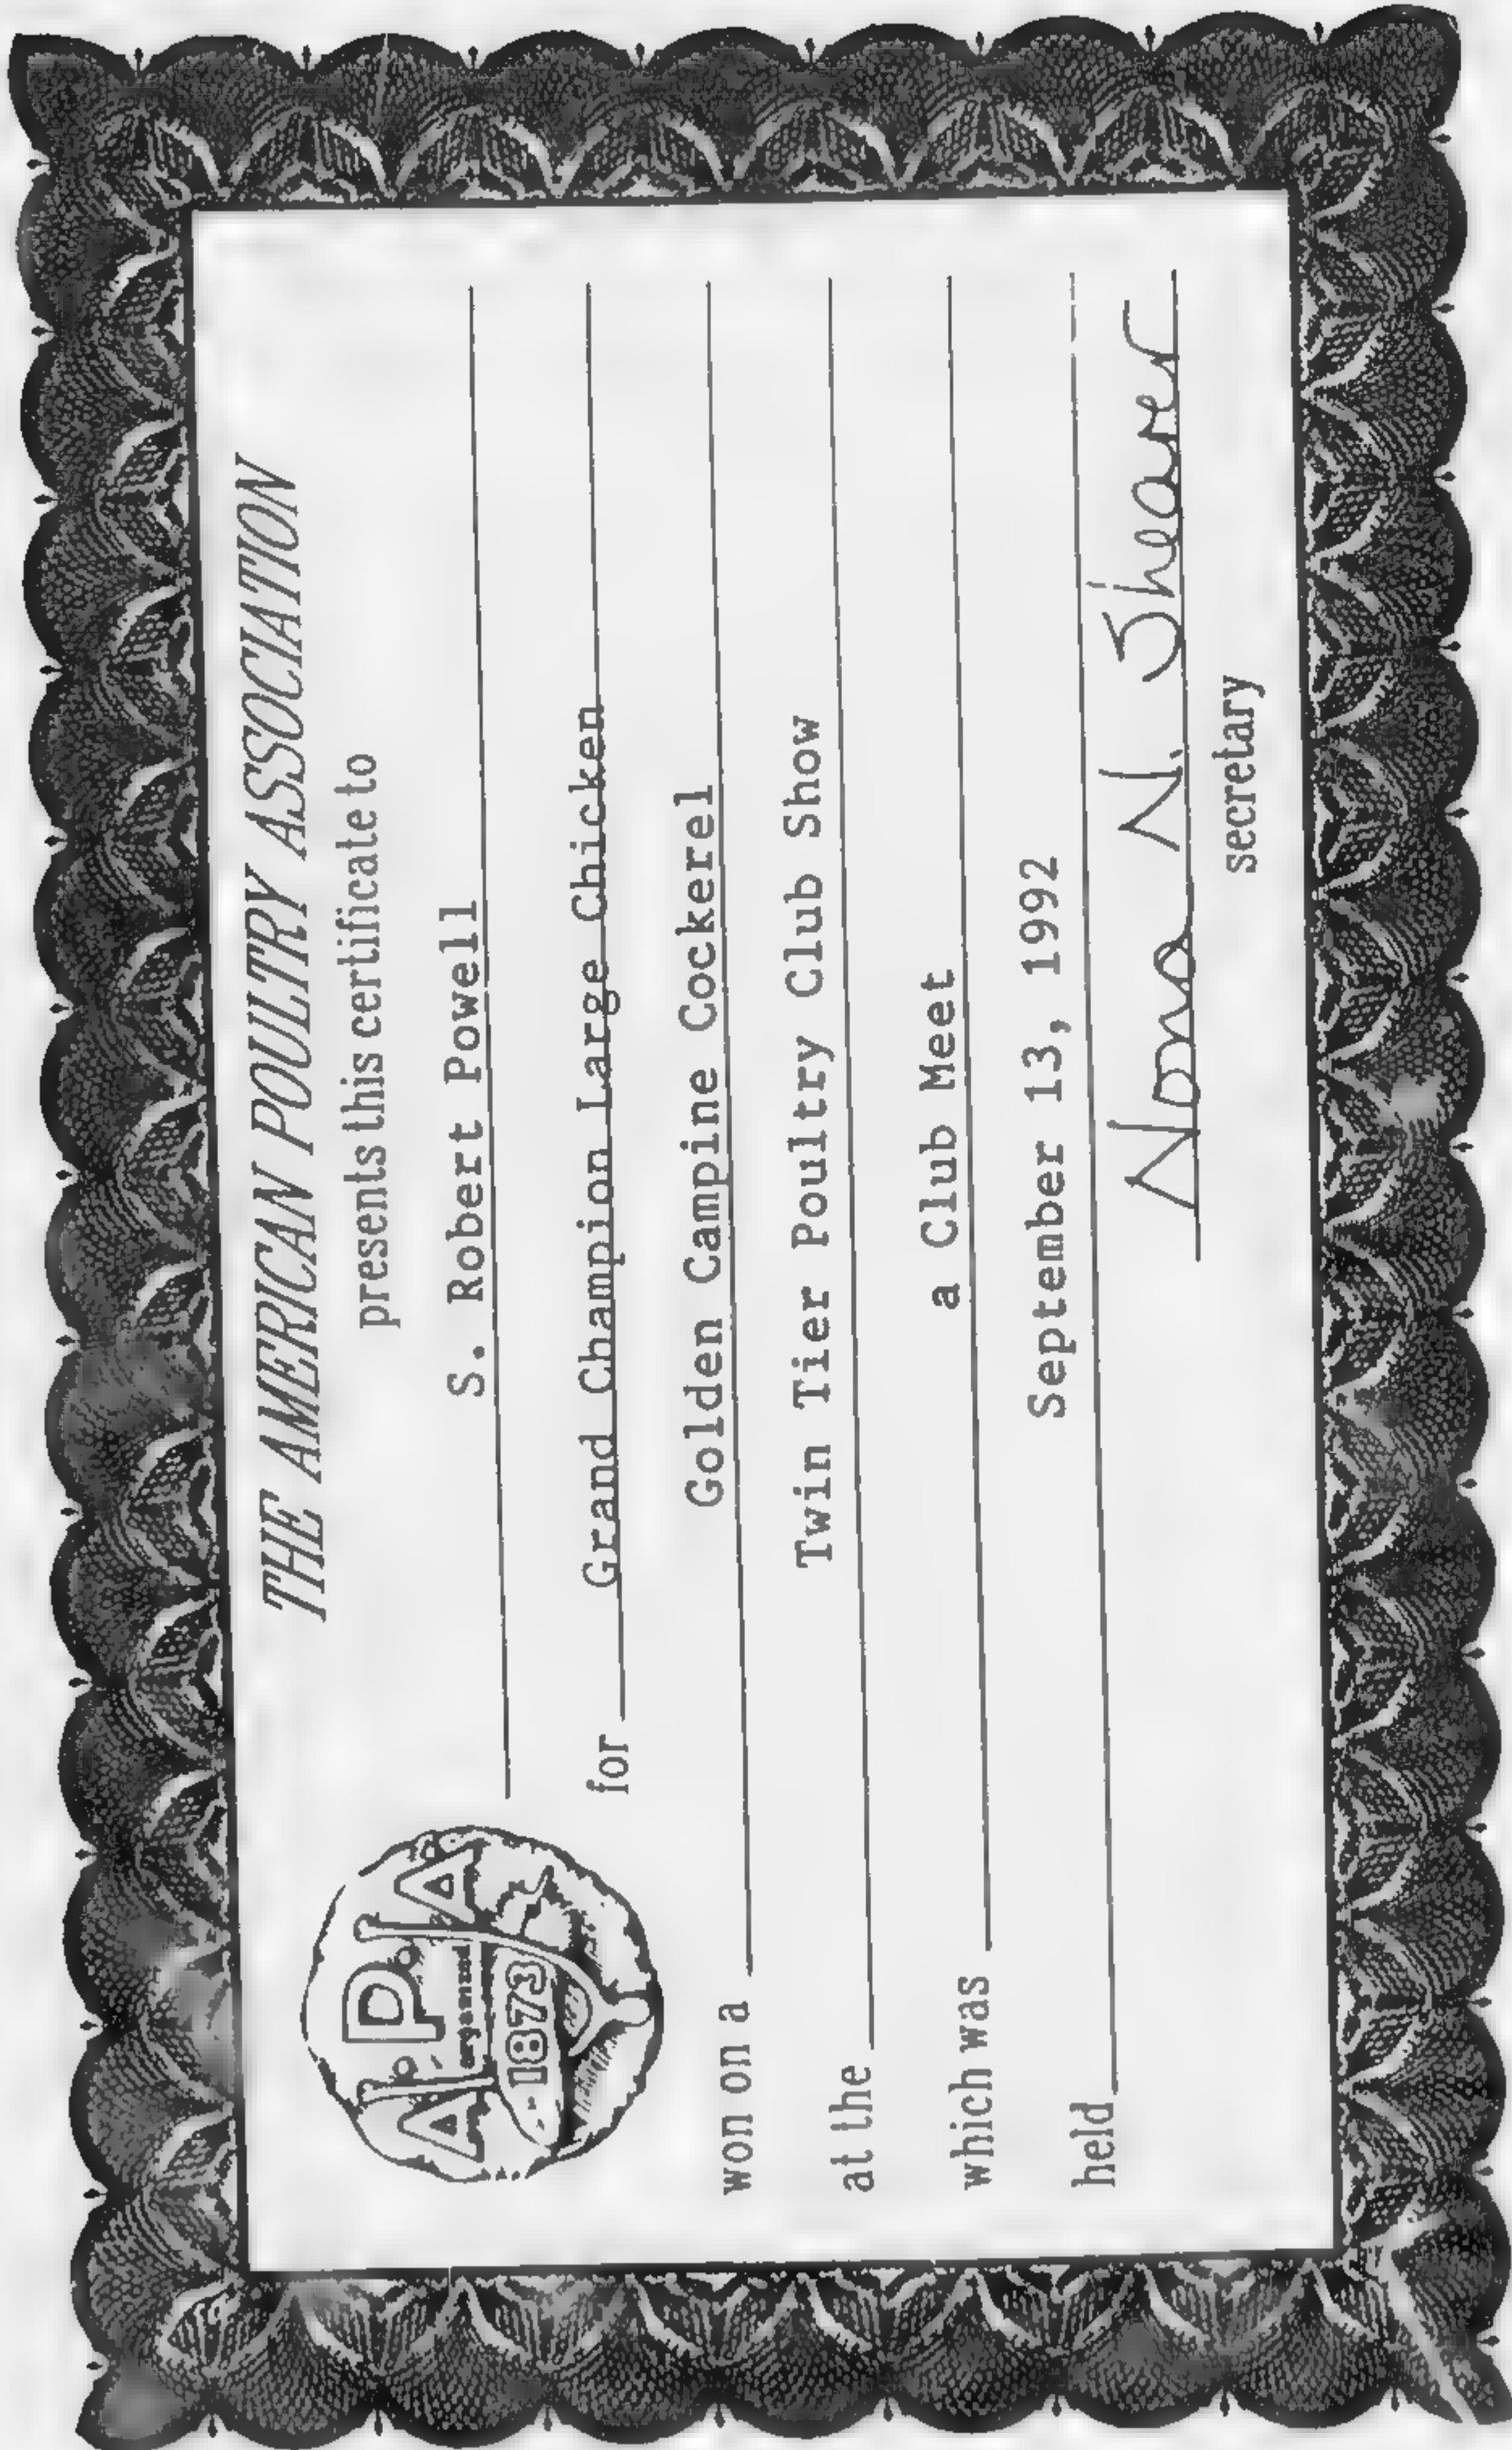 THE AMERICAN POULTRY ASSOCIATION
presents this certificate to
S. Robert Powell
A.P.A
organized
1873
for Grand Champion Large Chicken
won on a Golden Campine Cockerel
at the Twin Tier Poultry Club Show
which was a Club Meet
held September 13, 1992
Nona N. Shearer
secretary